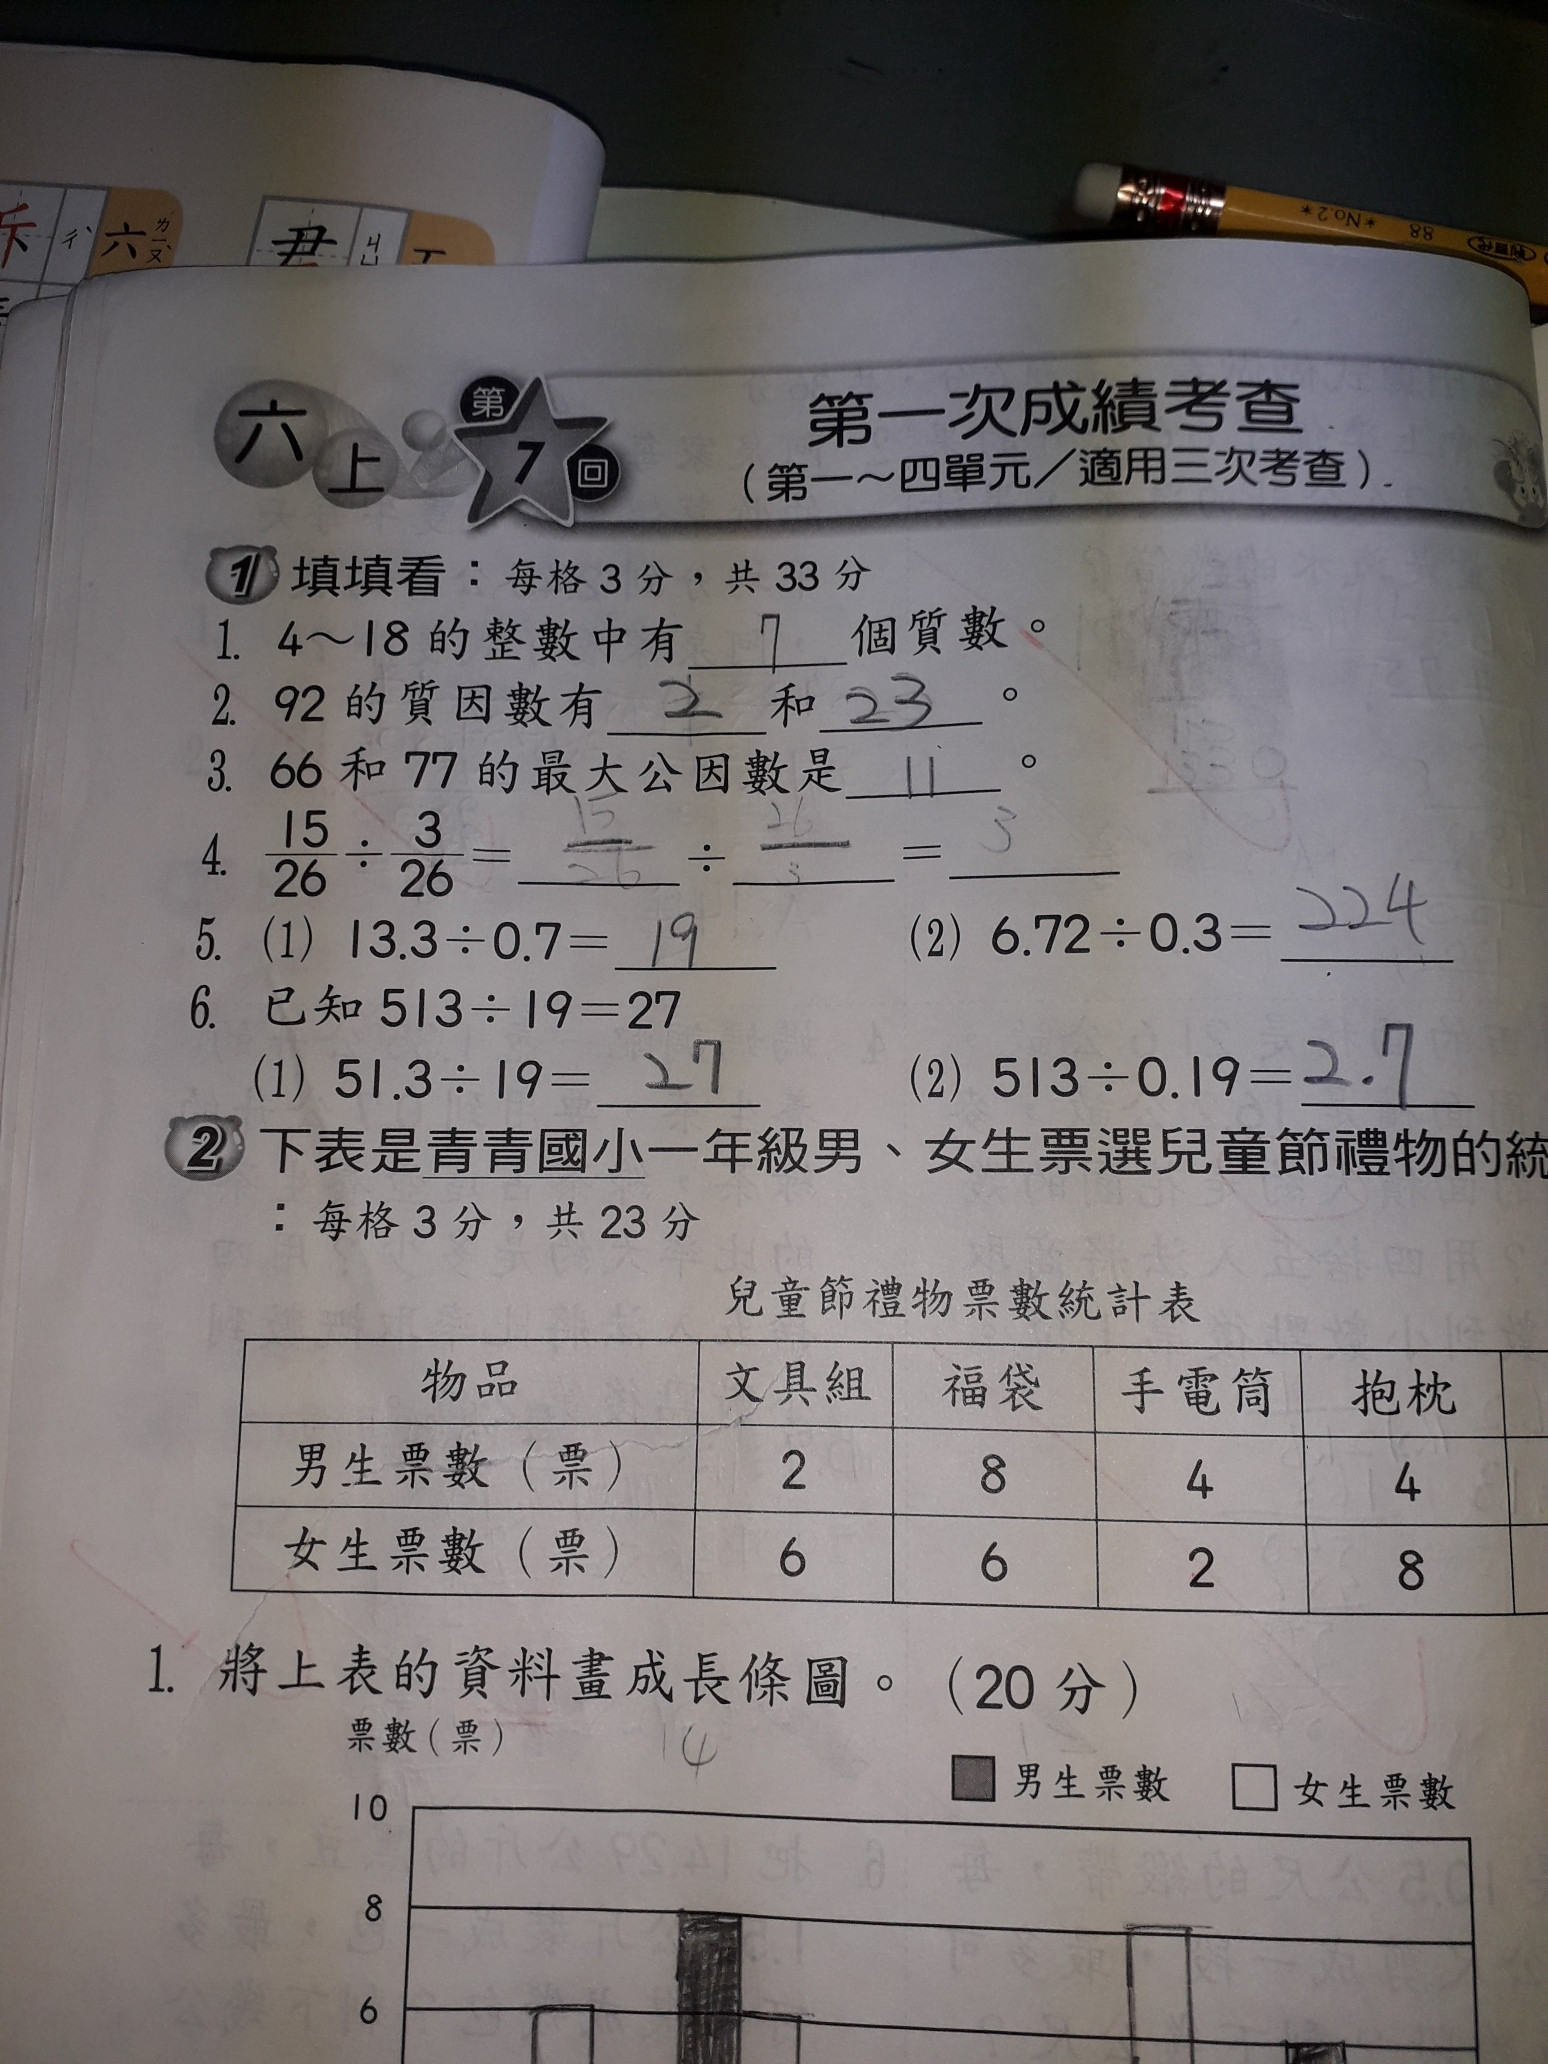 六 ㄌㄧㄡˋ
君 ㄐㄩ
88 *No.2*
六上 第7回 第一次成績考查
（第一～四單元／適用三次考查）
1 填填看：每格3分，共33分
1. 4～18的整數中有 7 個質數。
2. 92的質因數有 2 和 23 。
3. 66和77的最大公因數是 11 。
4. 15/26 ÷ 3/26 = 15/26 ÷ 26/3 = 3
5. (1) 13.3÷0.7= 19 (2) 6.72÷0.3= 224
6. 已知513÷19=27
(1) 51.3÷19= 27 (2) 513÷0.19= 2.7
2 下表是青青國小一年級男、女生票選兒童節禮物的統
：每格3分，共23分
兒童節禮物票數統計表
物品 文具組 福袋 手電筒 抱枕
男生票數（票） 2 8 4 4
女生票數（票） 6 6 2 8
1. 將上表的資料畫成長條圖。（20分）
票數（票） 14
男生票數 女生票數
10
8
6